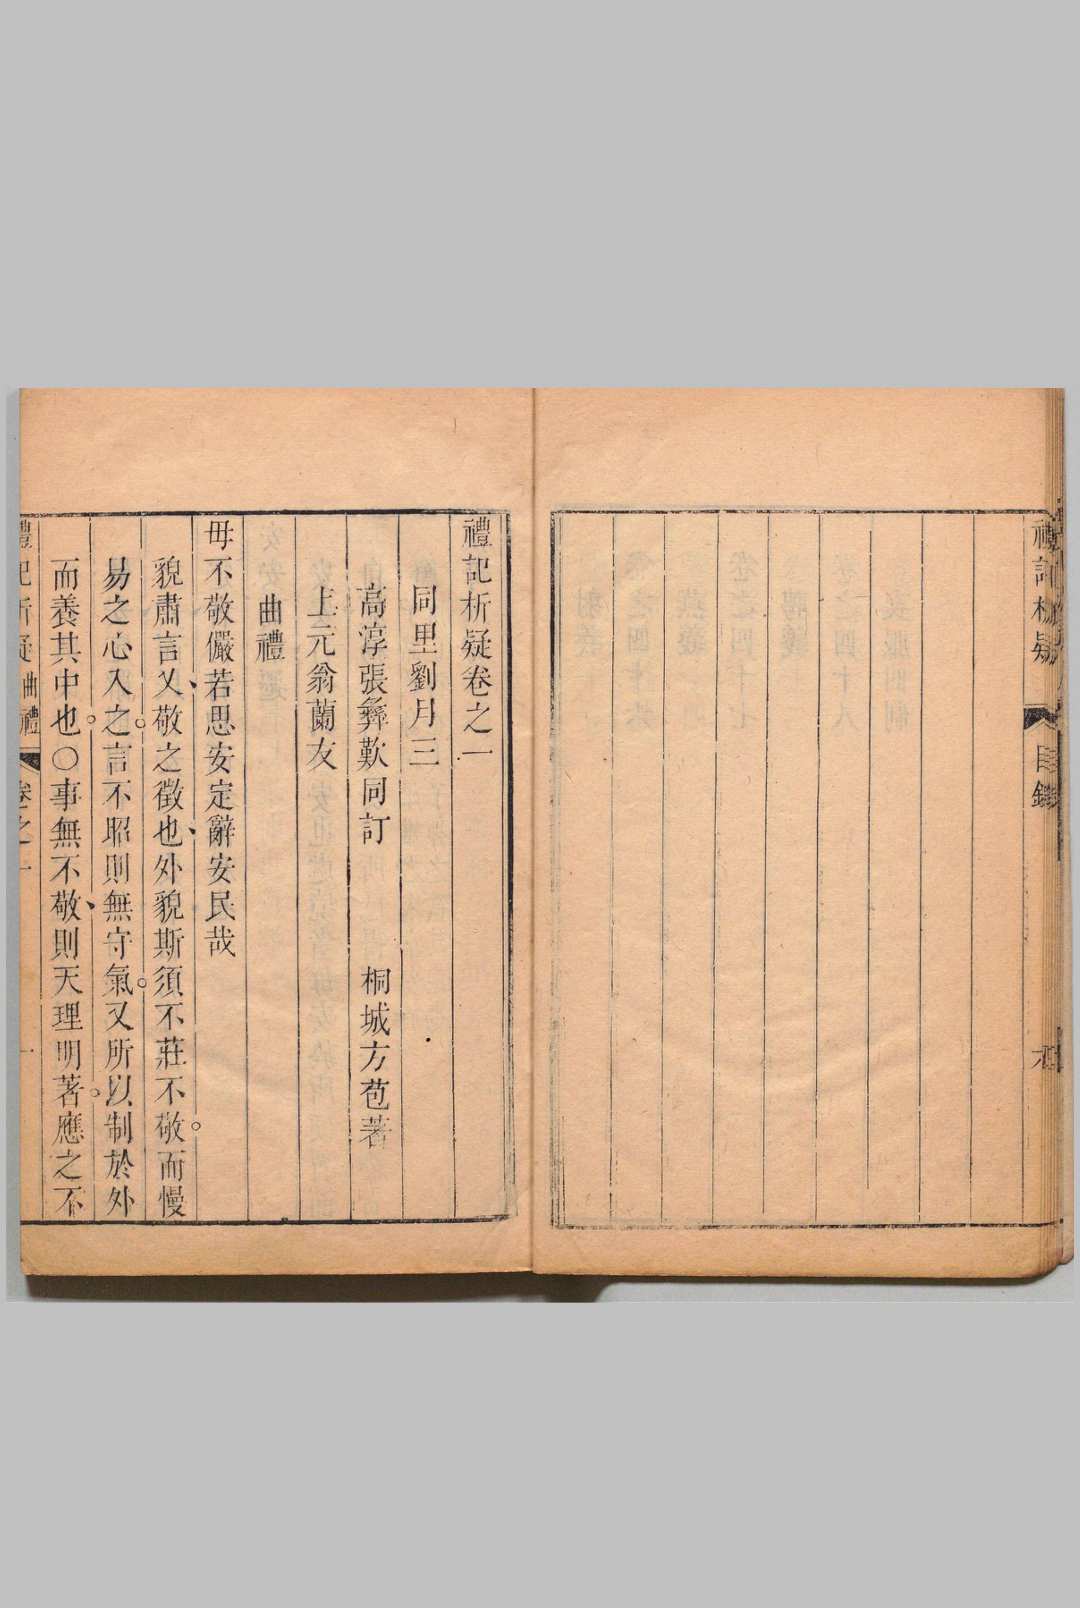 禮記析疑 目錄
禮記析疑卷之一
同里劉月三
高淳張彝歎同訂 桐城方苞著
上元翁蘭友
曲禮
毋不敬儼若思安定辭安民哉
貌肅言乂敬之徵也外貌斯須不莊不敬而慢
易之心入之言不昭則無守氣又所以制於外
而養其中也○事無不敬則天理明著應之不
禮記析疑 曲禮 卷之一 一